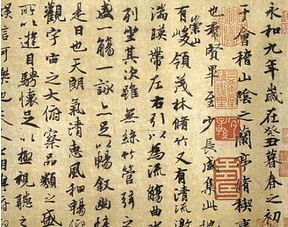 永和九年歲在癸丑暮春之初
于會稽山陰之蘭亭脩稧事
也羣賢畢至少長咸集此
有崇山峻領茂林脩竹又有清流激
湍暎帶左右引以為流觴曲水
列坐其次雖無絲竹管弦之
盛一觴一詠亦足以暢敘幽情
是日也天朗氣清惠風和暢
觀宇宙之大俯察品類之盛
所以遊目騁懷足以極視聽之
信可樂也夫人之相